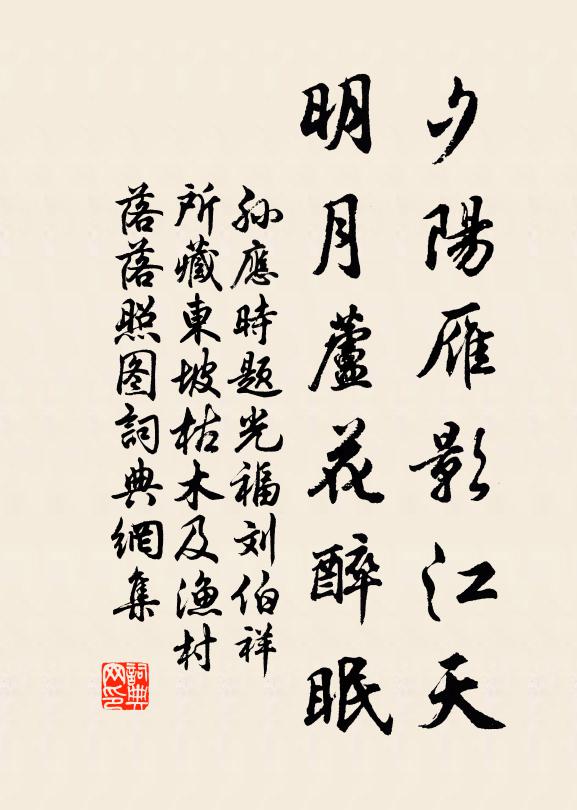 夕陽雁影江天
明月蘆花醉眠
孙應時题光福刘伯祥
所藏東坡枯木及漁村
落落照图詞典網集
詞典
网印